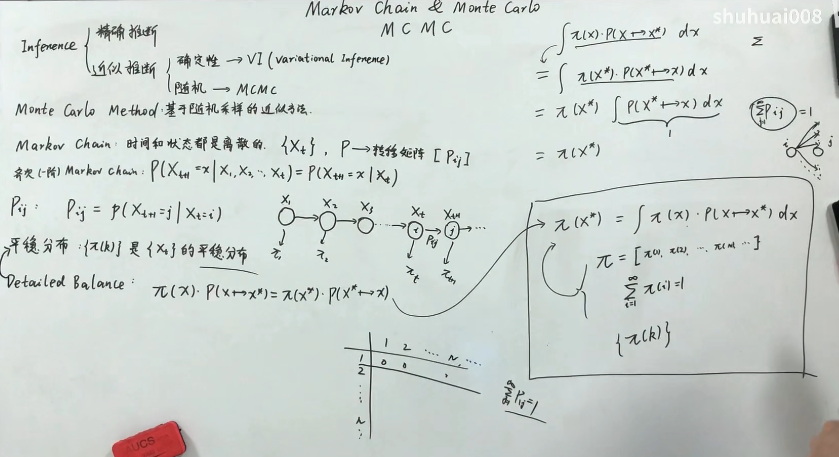 Markov Chain & Monte Carlo
MCMC
shuhuai008
Inference { 精确推断
近似推断 { 确定性 → VI (variational Inference)
随机 → MCMC
Monte Carlo Method: 基于随机采样的近似方法.
Markov Chain: 时间和状态都是离散的. {Xt}, P → 转移矩阵 [Pij]
齐次(一阶) Markov Chain: P(Xt+1 = x | X1, X2, ..., Xt) = P(Xt+1 = x | Xt)
Pij: Pij = p(Xt+1=j | Xt=i)
X1 X2 X3 Xt Xt+1
i Pij j ...
π1 π2 πt πt+1
平稳分布: {π(k)} 是 {Xt} 的平稳分布
Detailed Balance: π(x)·P(x↦x*) = π(x*)·P(x*↦x)
∫ π(x)·P(x↦x*) dx
Σ
= ∫ π(x*)·P(x*↦x) dx
= π(x*) ∫ P(x*↦x) dx
1
= π(x*)
Pij = 1
i j
π(x*) = ∫ π(x)·P(x↦x*) dx
π = [π(1), π(2), ..., ...]
∑ π(i) = 1
{π(k)}
1 2 ....
1 0 0
2
Pij = 1
AUCS